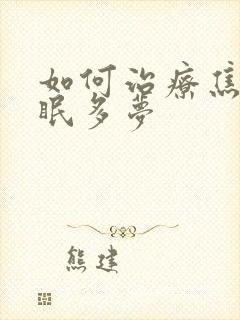 如何治療焦
眠多夢
熊建